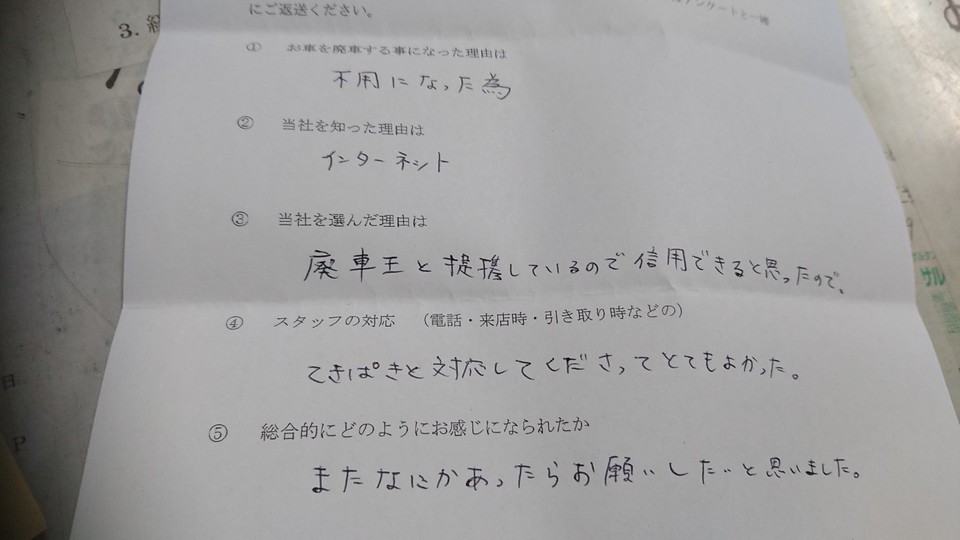 にご返送ください。
3.
① お車を廃車する事になった理由は
不用になった為
② 当社を知った理由は
インターネット
③ 当社を選んだ理由は
廃車王と提携しているので信用できると思ったので。
④ スタッフの対応 （電話・来店時・引き取り時などの）
てきぱきと対応してくださってとてもよかった。
⑤ 総合的にどのようにお感じになられたか
またなにかあったらお願いしたいと思いました。
サル
日
P